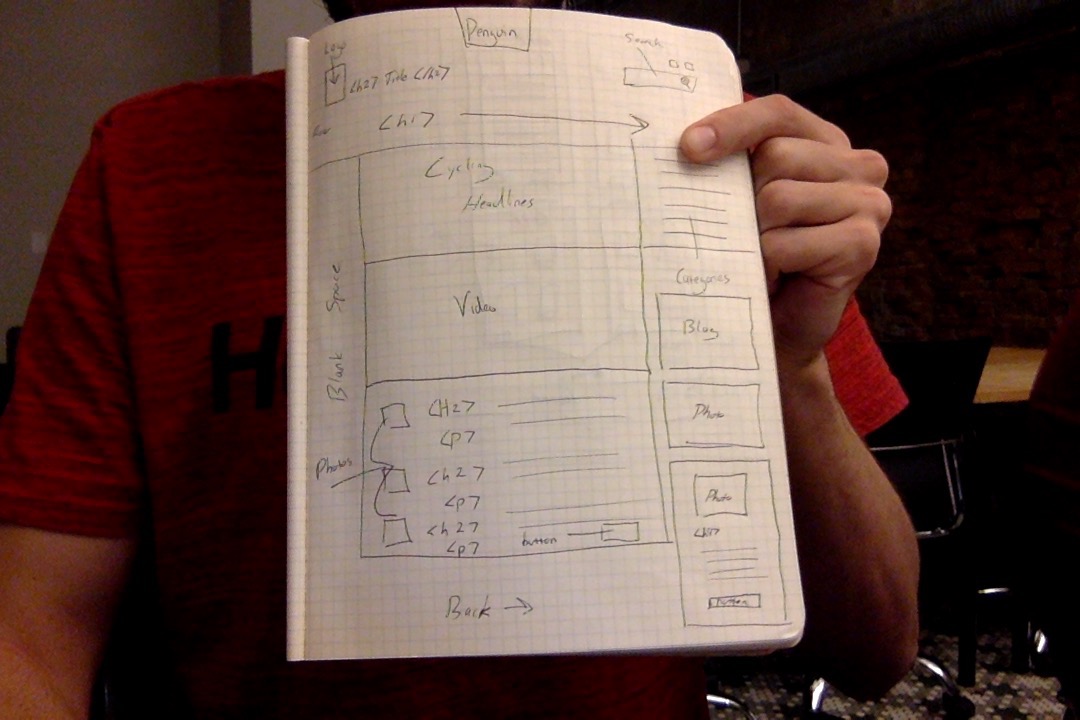 Penguin
Logo
<h2> Title </h2>
Search
<h1>
Cycling
Headlines
Categories
Blank Space
Video
Blog
Photo
<H2>
<p>
Photos
<h2>
<p>
<h2>
<p>
button
Photo
<h1>
button
Back →
H